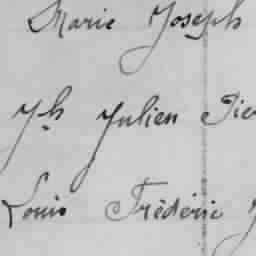 Marie Joseph
Jh Julien Pier
Louis Fréderic J